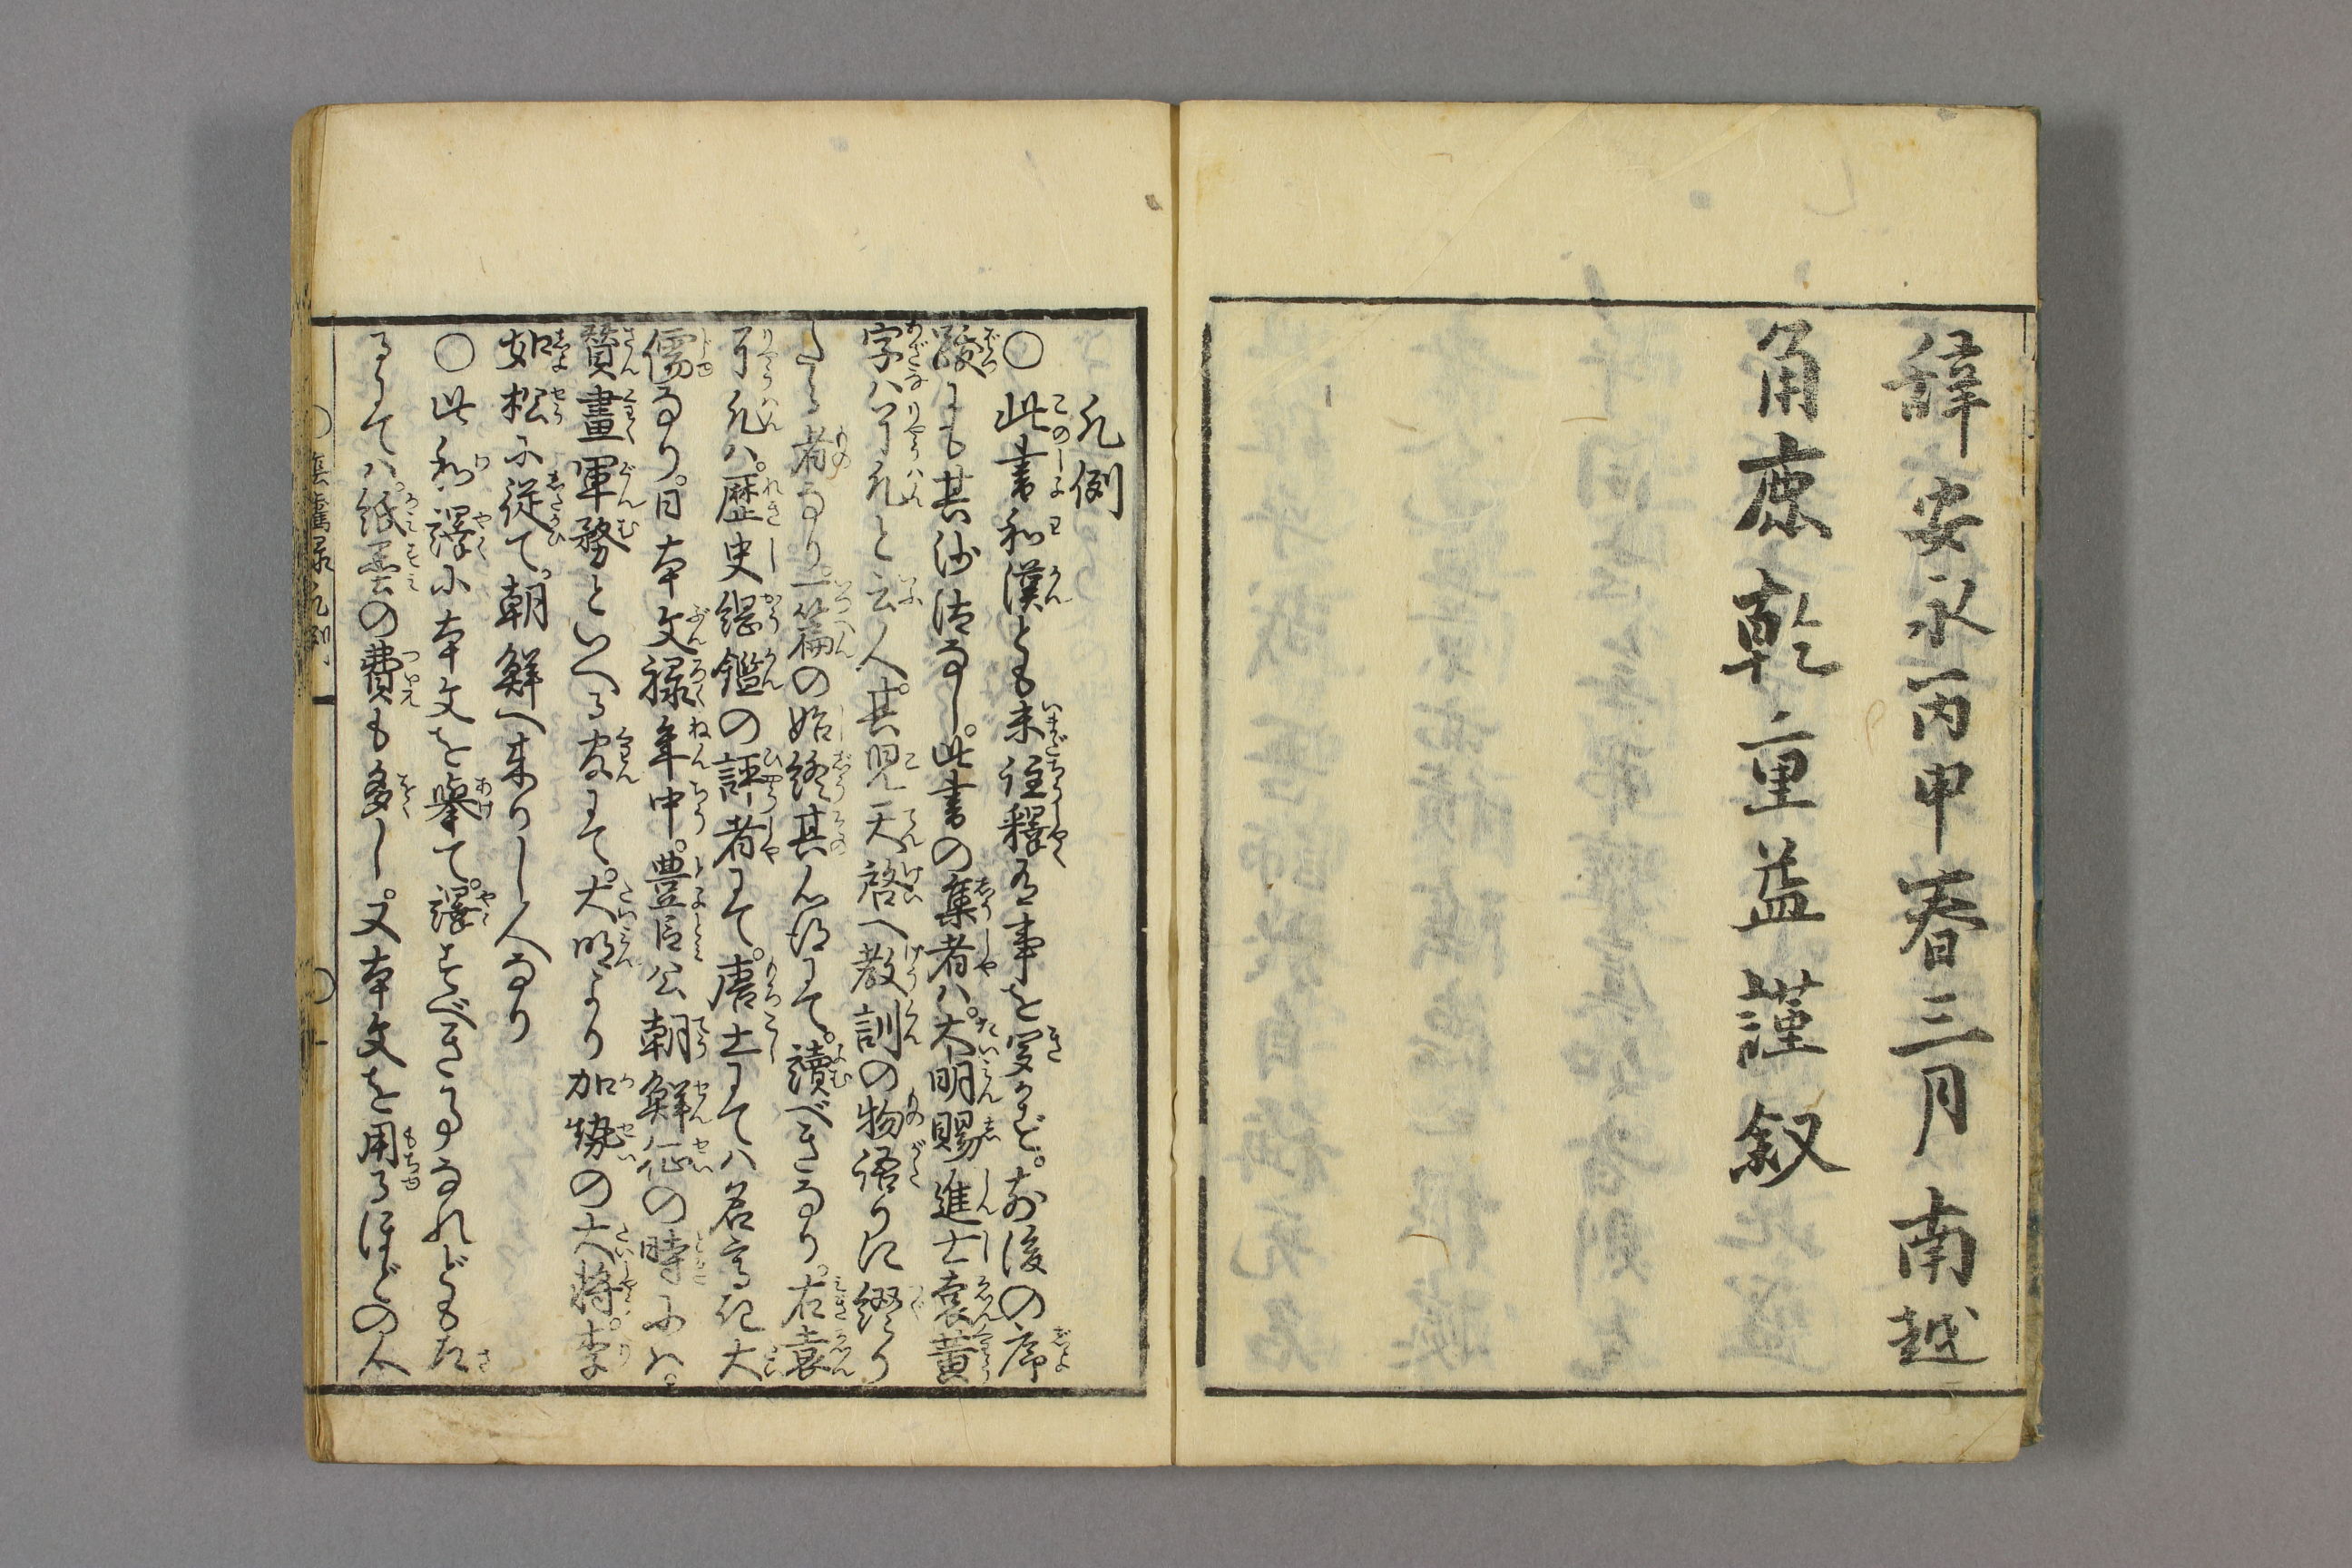 辭安永丙申春三月南越
角鹿乾重益謹叙
凡例
○此書和漢とも未註釋有事を聞かず。前後の序
跋にも其沙汰なし。此書の集者ハ。大明賜進士袁黄
字ハ了凡と云人。其児天啓へ教訓の物語りに綴り
たる者なり。一篇の始終其心得にて。讀べきなり。右袁
了凡ハ。歴史綱鑑の評者にて。唐土にてハ名高に大
儒なり。日本文禄年中。豊臣公朝鮮征の時にハ。
賛畫軍務といへる官にて。大明より加勢の大将。李
如松に従て。朝鮮へ来りし人なり
○此和譯に本文を擧て。譯すべき事なれどもた
るにてハ。紙墨の費も多し。又本文を用るほどの人
陰隲録凡例 一